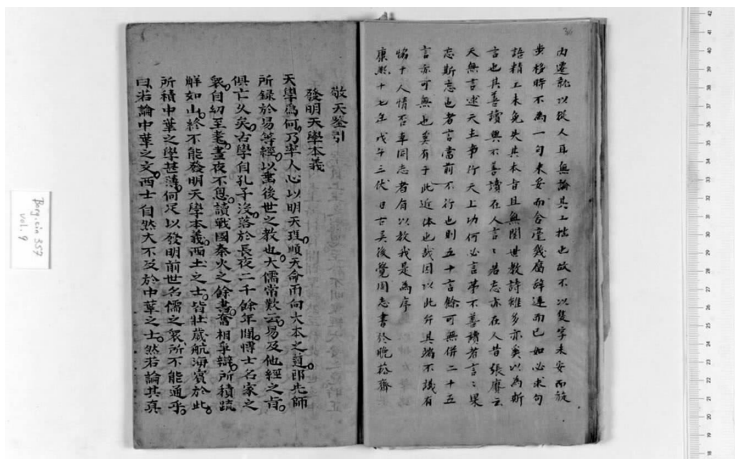 內遷就以從人耳無論其工拙也故不以隻字未安而敢
步移時不為一句未妥而含毫幾腐辭達而已如必求句
語精工未免失其本旨且無關世教詩雖多亦奚以為斯
言也其善讀與不善讀在人言言君志亦在人昔張云
天無言述天主事行天上功何必言第不善讀者言言果
忘斯忘也者言當前不行也則五十言餘可無併二十五
言亦可無也奚有于此近体也哉因以此弁其端不識有
愜于人情否同志者有以教我是為序
康熙十七年戊午三伏日古吳後學周志書於晚菘齋
敬天鑒引
發明天學本義
天學為何乃半人心以明天理順天命而向大本之道耶先師
所錄於易等經以垂後世之教也大儒常歎云易及他經之旨
俱亡久矣古學自孔子沒落於長夜二千餘年間博士名家之
裔自幼至耄晝夜不息讀戰國秦火之餘書奮相爭辯所積疏
解如山終不能發明天學本義西土之士皆壯歲航海賓於此
所積中華之學甚薄何足以發明前世名儒之裔所不能通乎
曰若論中華之文西士自然大不及於中華之士然若論其真
Borg.cin 357
vol. 9